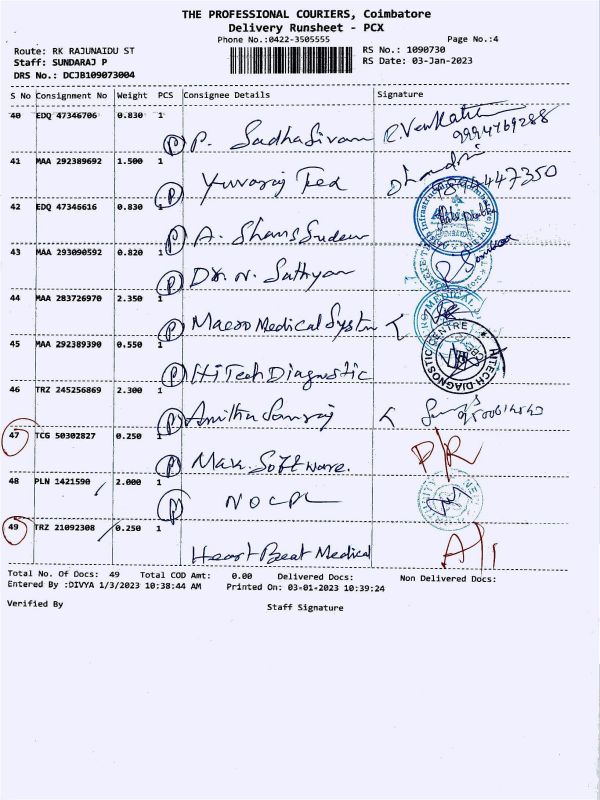 THE PROFESSIONAL COURIERS, Coimbatore
Delivery Runsheet - PCX
Phone No.:0422-3505555 Page No.:4
Route: RK RAJUNAIDU ST RS No.: 1090730
Staff: SUNDARAJ P RS Date: 03-Jan-2023
DRS No.: DCJB109073004
S No Consignment No Weight PCS Consignee Details Signature
40 EDQ 47346706 0.830 1
P P. Sadhasivam R. Venkatesh 9994769288
41 MAA 292389692 1.500 1
P Yuvaraj Teed 447350
42 EDQ 47346616 0.830 1
P A. Shamsudeen
43 MAA 293090592 0.820 1
P Dr. N. Sathyan
44 MAA 283726970 2.350 1
P Macro Medical System
45 MAA 292389390 0.550 1
P HiTech Diagnostic HITECH-DIAGNOSTIC CENTRE
46 TRZ 245256869 2.300 1
P Amitha Samraj
47 TCG 50302827 0.250 1
P Mak. Software. P/R
48 PLN 1421590 2.000 1
P NOCPL
49 TRZ 21092308 0.250 1
Heart Beat Medical
Total No. Of Docs: 49 Total COD Amt: 0.00 Delivered Docs: Non Delivered Docs:
Entered By :DIVYA 1/3/2023 10:38:44 AM Printed On: 03-01-2023 10:39:24
Verified By Staff Signature